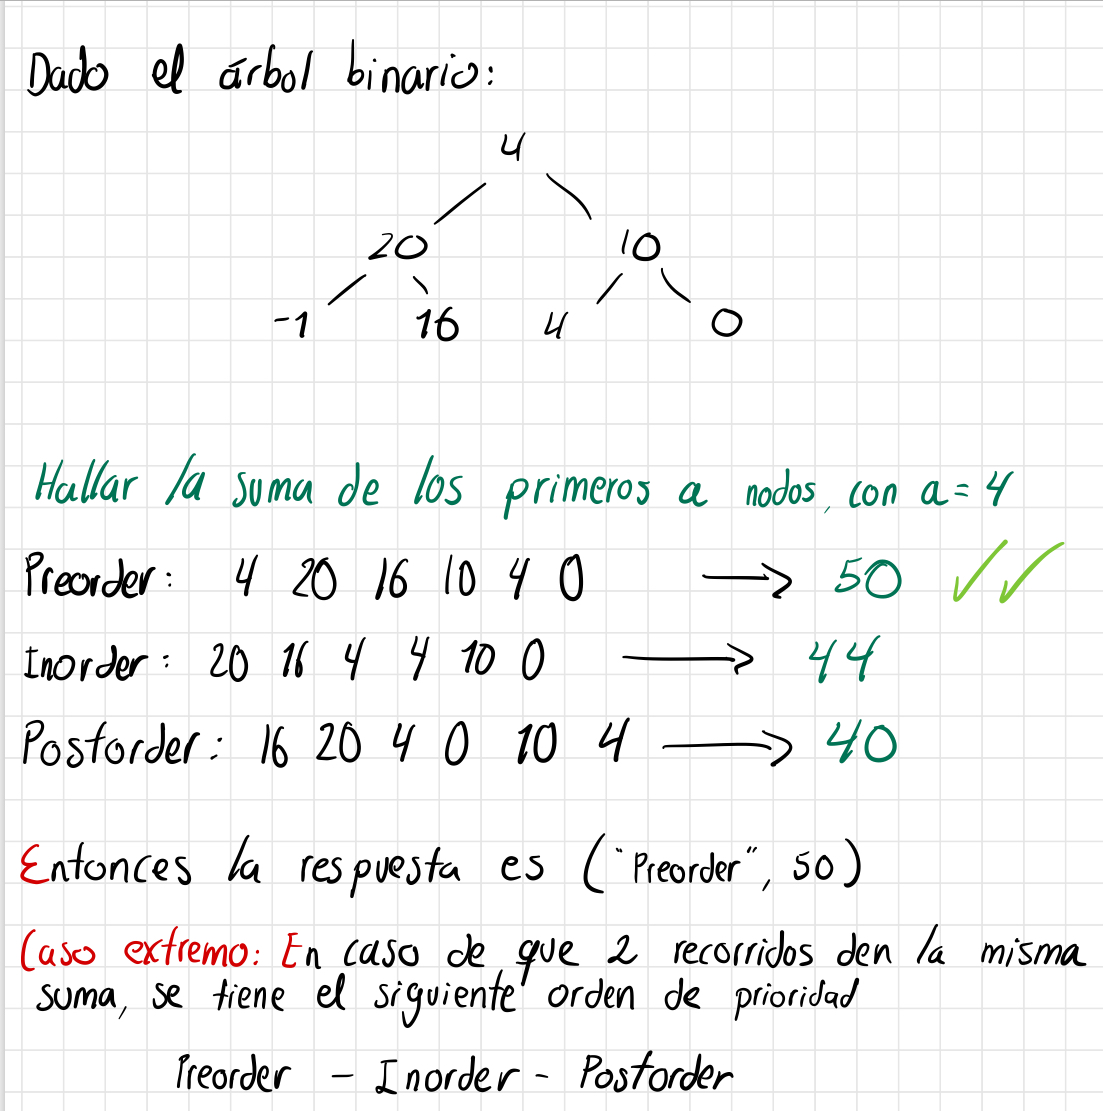 Dado el árbol binario:
4
20 10
-1 16 4 0
Hallar la suma de los primeros a nodos, con a = 4
Preorder: 4 20 16 10 4 0 → 50 ✓✓
Inorder: 20 16 4 4 10 0 → 44
Postorder: 16 20 4 0 10 4 → 40
Entonces la respuesta es ("Preorder", 50)
Caso extremo: En caso de que 2 recorridos den la misma
suma, se tiene el siguiente orden de prioridad
Preorder - Inorder - Postorder